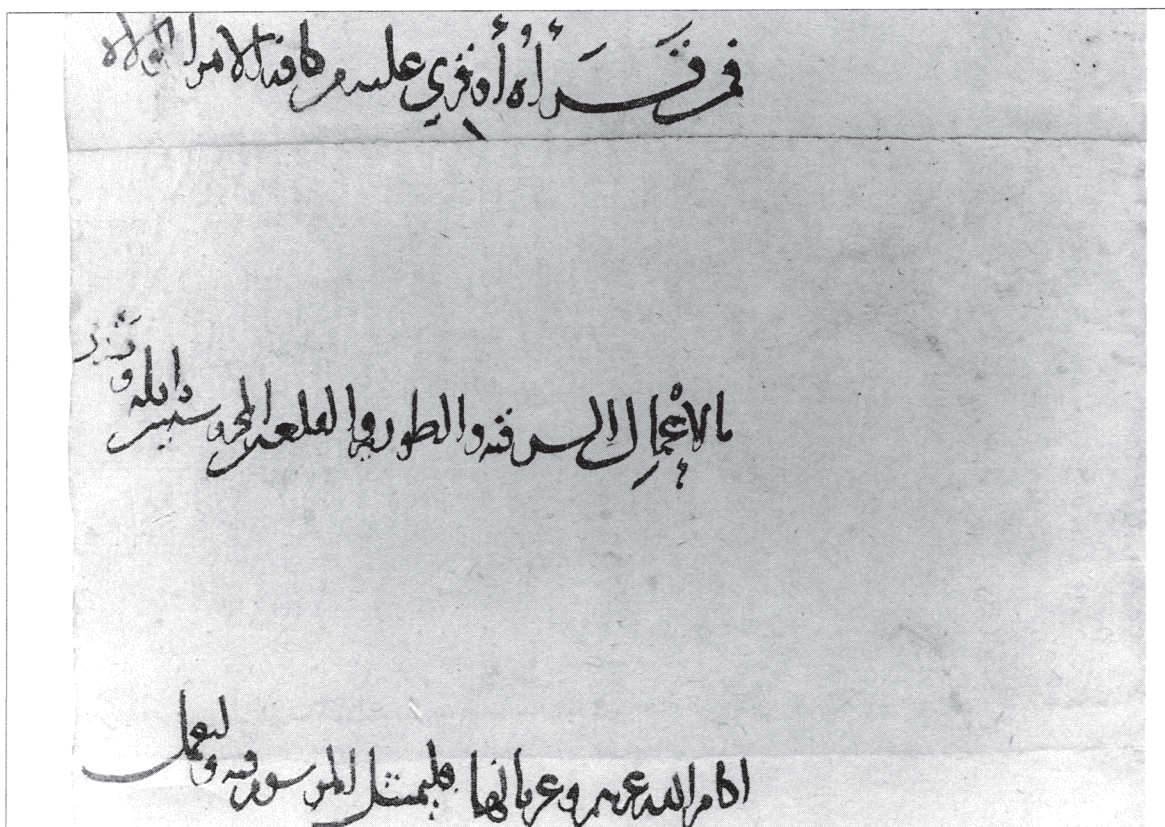 فمن قَرَأَهُ أو قري عليه من كافة الامرا الولاه
بالاعمالِ الشرقيه والطور والقلعتين المحروستين بايله وصَدر
ادام الله عزهم وعربانها فليمتثل المرسوم فيه وليعمل